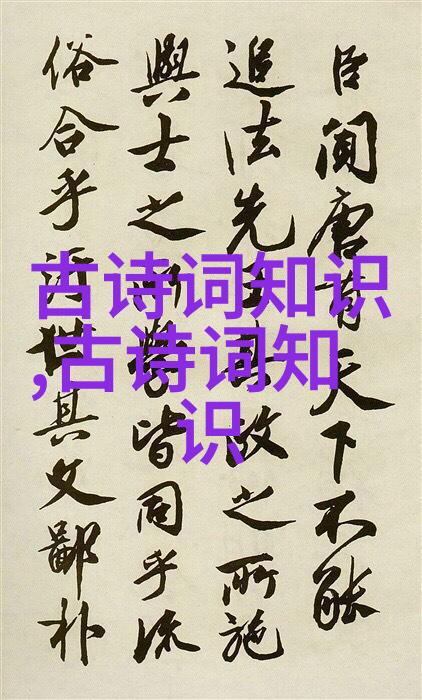 臣聞唐有天下不能
追法先王其政之所施
與士之所學皆同乎流
俗合乎污世其文鄙朴
古诗词知识
,古诗词知
识